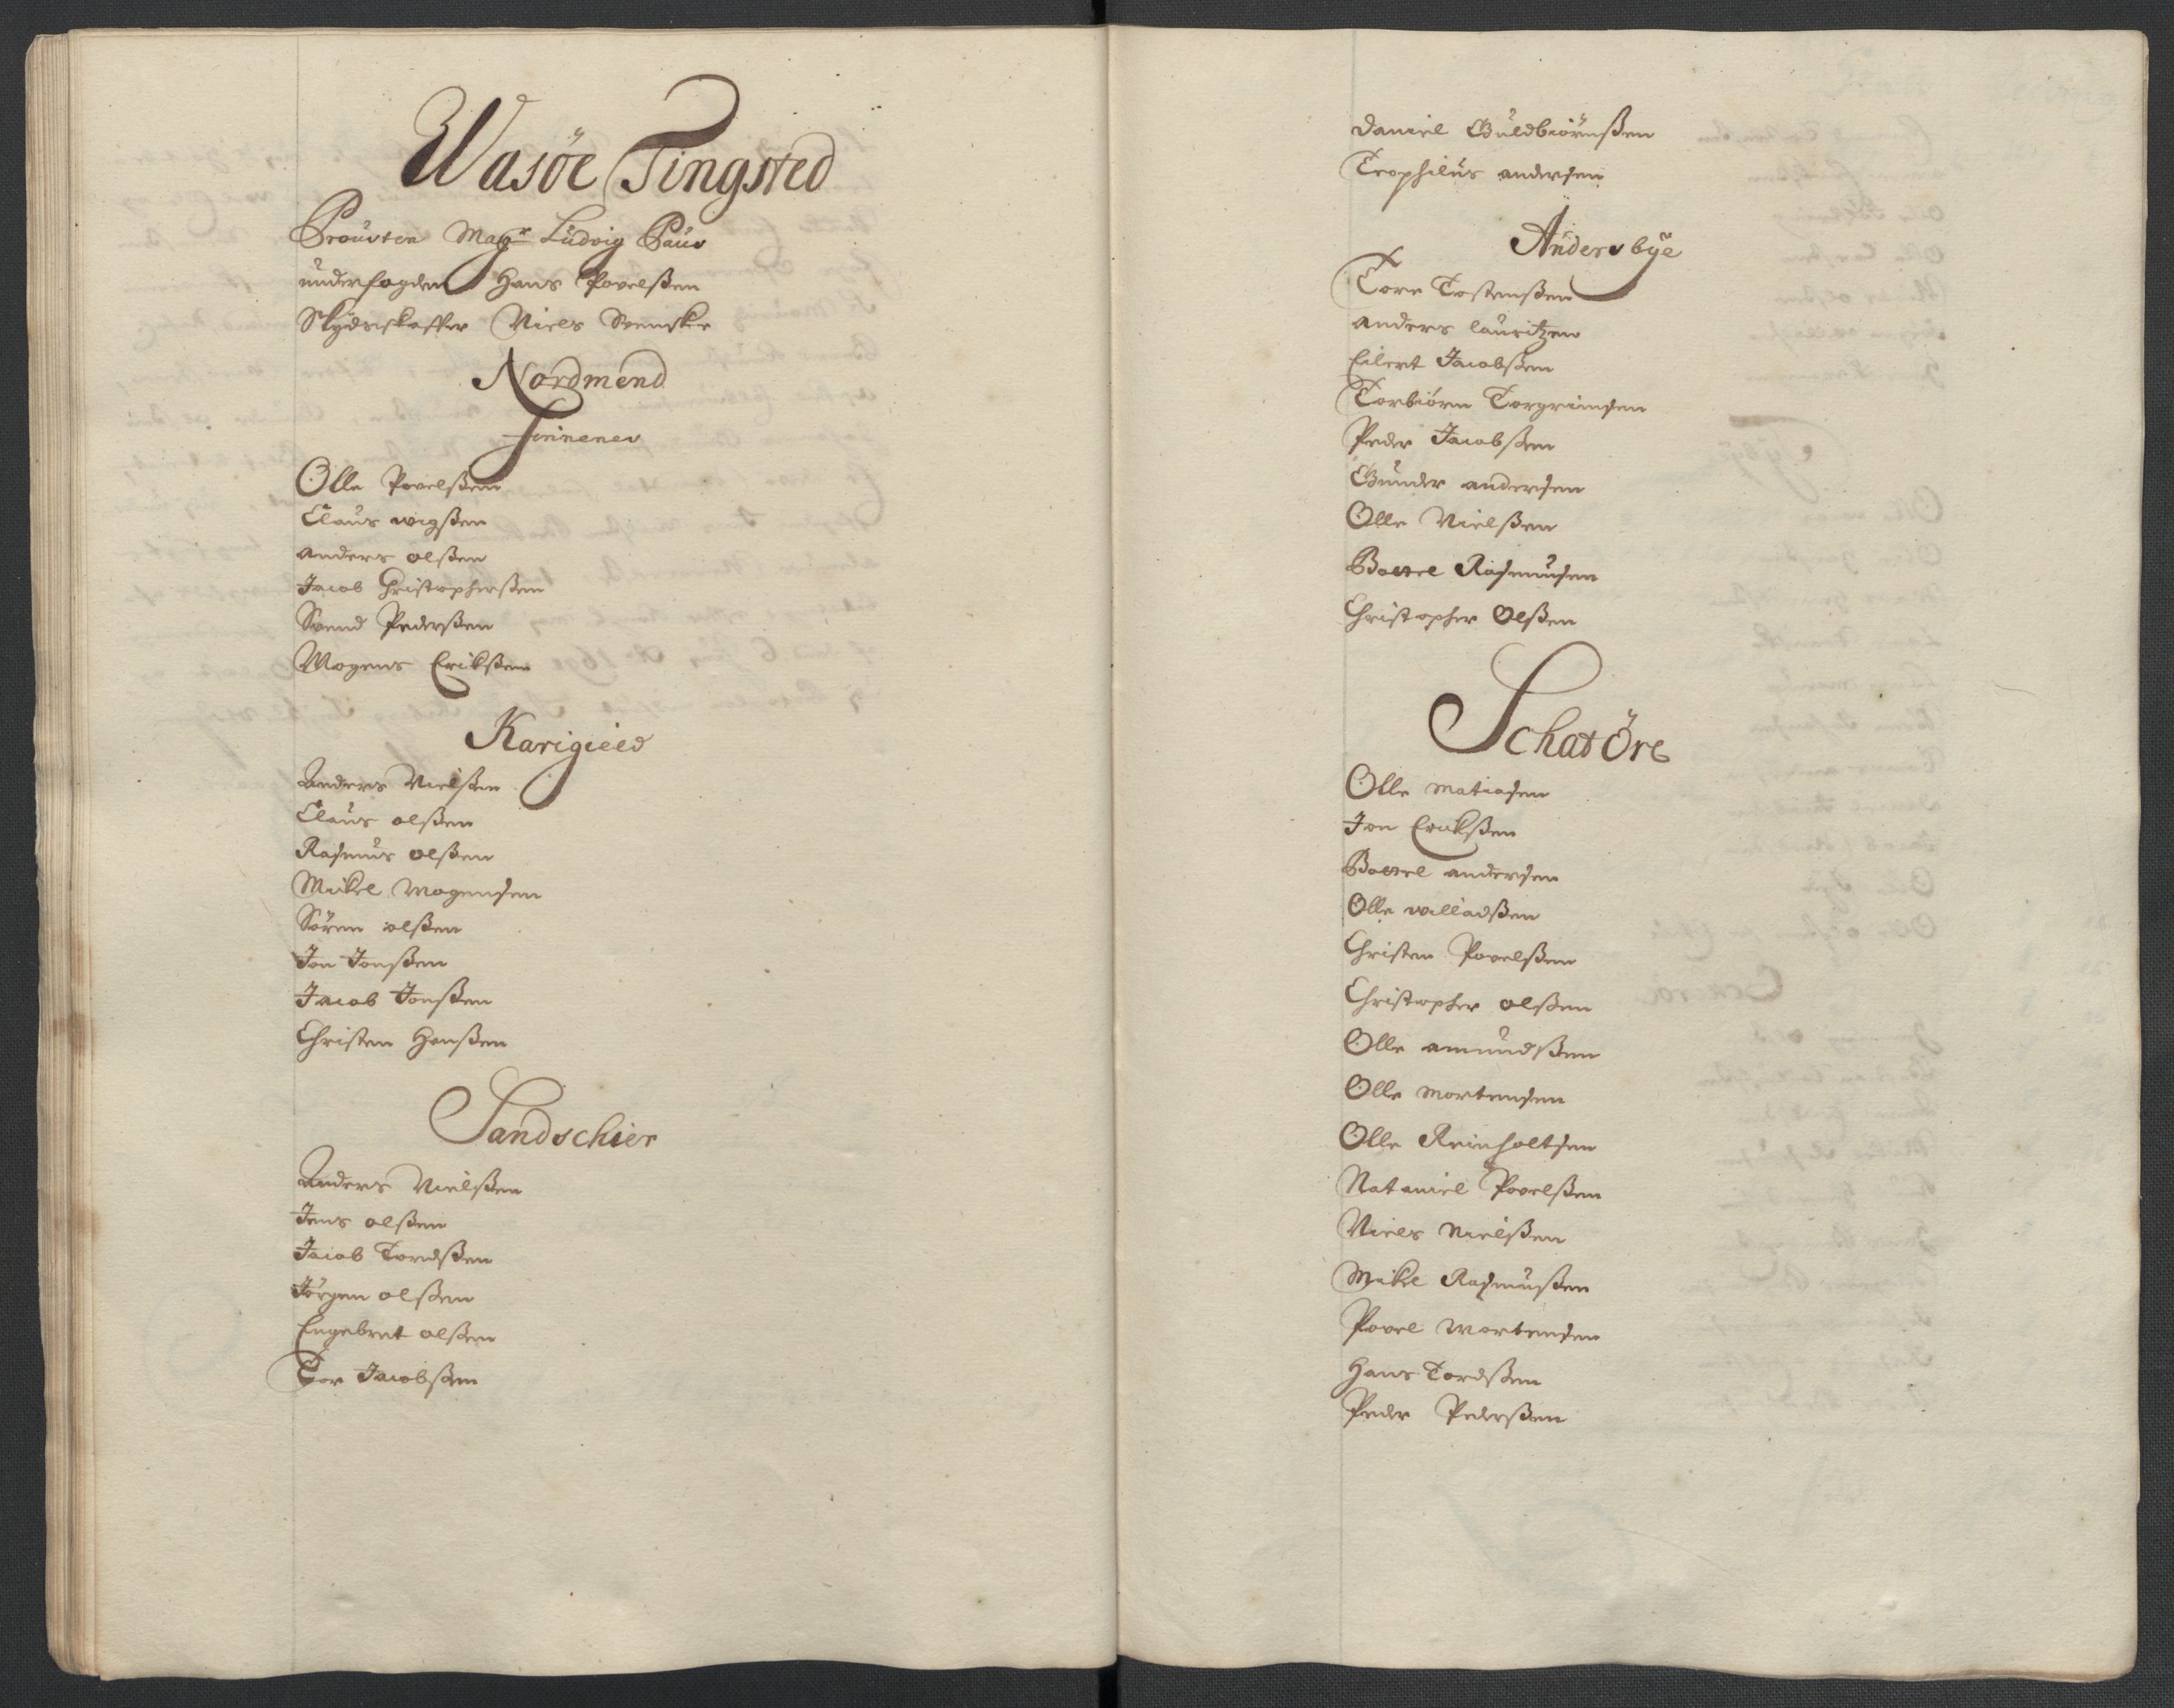 Wasöe Tingsted
Prousten Magr Ludvig Paus
underfogden Hans Povelßen
Skydsskaffer Niels Svenske
Nordmend
Finnenes
Olle Povelßen
Claus wigßen
anders olßen
Jacob Christopherßen
Svend Pederßen
Mogens Erikßen
Karigield
Anders Nielßen
Claus olßen
Rasmus olßen
Mikel Mogensen
Sören olßen
Jon Jonßen
Jacob Jonßen
Christen Hanßen
Sandschier
Anders Nielßen
Jens olßen
Jacob Tordßen
Jörgen olßen
Engebret olßen
Tor Jacobßen
Daniel Guldbiörnßen
Teophilus andersen
Andersbye
Tore Tostenßen
anders lauritzen
Eilert Jacobßen
Torbiörn Torgrimsen
Peder Jacobßen
Gunder andersen
Olle Nielßen
Baerel Rasmusen
Christopher Olßen
Schatöre
Olle Matiasen
Jon Erikßen
Baerel andersen
Olle willadßen
Christen Povelßen
Christopher olßen
Olle amundßen
Olle Mortensen
Olle Reinholtsen
Nataniel Povelßen
Niels Nielßen
Mikel Rasmusßen
Povel Mortensen
Hans Tordßen
Peder Pederßen